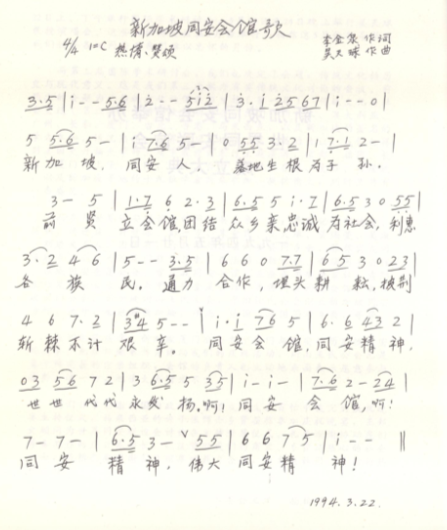 新加坡同安会馆歌
4/4 1=C 热情.赞颂
作词
作曲
3·5|i--56|2--5i2|3·i2567|i--0|
5 565-|i765-|0 553·2|1712-|
新加坡.同安人.基地生根为子孙.
3-5|1·7623|6·55i·7|6·53055|
前贤立会馆团结众乡亲忠诚为社会,利惠
3·246|5--3·5|6607·7|653023|
各族民.通力合作,埋头耕耘,披荆
467·2|345--|i·i765|6·6432|
斩棘不计艰辛。同安会馆,同安精神.
035672|3655 35|i-i-|7·62-24|
世世代代永发扬,啊!同安会馆,啊!
7-7-|6·53-55|6675|i--‖
同安精神.伟大同安精神!
1994.3.22.